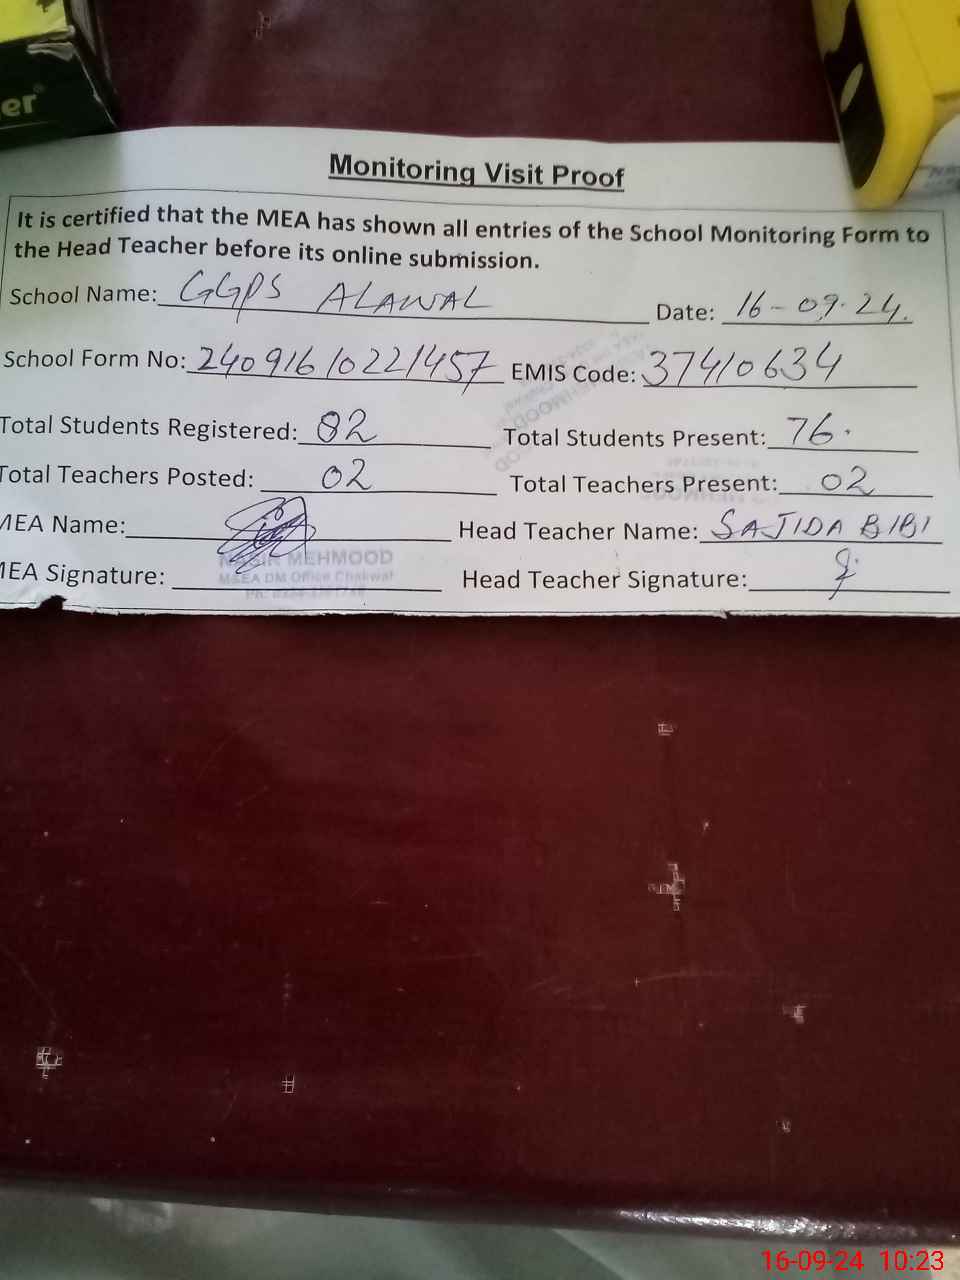 er
Monitoring Visit Proof
It is certified that the MEA has shown all entries of the School Monitoring Form to
the Head Teacher before its online submission.
School Name: GGPS ALAWAL Date: 16-09-24.
School Form No: 24091610221457 EMIS Code: 37410634
Total Students Registered: 82 Total Students Present: 76.
Total Teachers Posted: 02 Total Teachers Present: 02
MEA Name: Head Teacher Name: SAJIDA BIBI
MEHMOOD
MEA Signature: M&EA DM Office Chakwal Head Teacher Signature:
16-09-24 10:23